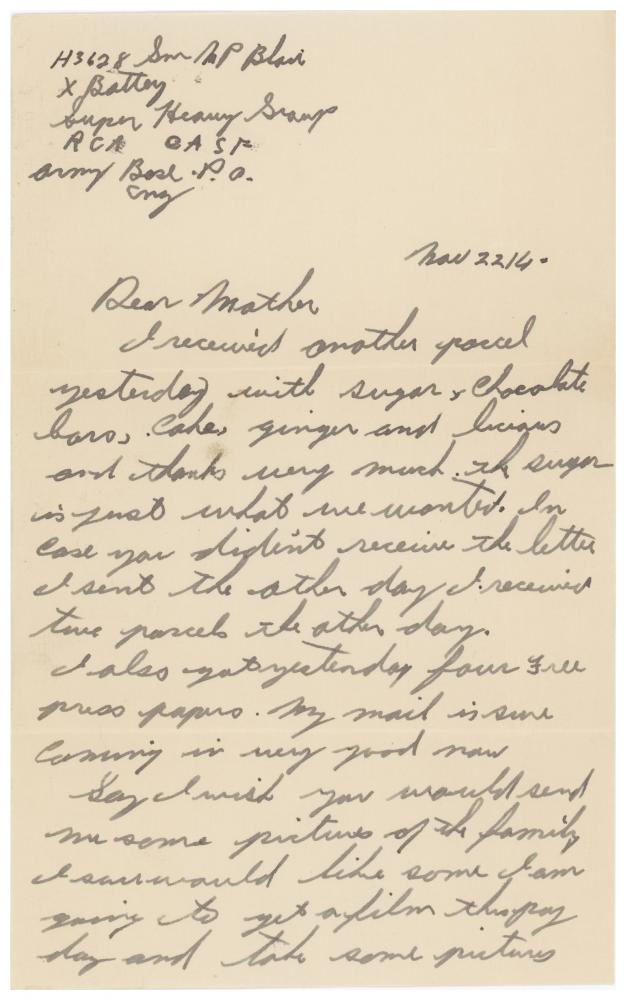 H3628 Gnr M P Blair
X Battey
Super Heavy Group
RCA CASF
Army Base P.O.
Eng
Nov 22/4-
Dear Mother
I received another parcel
yesterday with sugar, Chocolate
bars, Cake, ginger and licious
and thanks very much. the sugar
is just what we wanted. In
Case you did'ent receive the letter
I sent the other day I received
two parcels the other day.
I also got yesterday four Free
press papers. My mail is sure
Coming in very good now
Say I wish you would send
me some pictures of the family
I sure would like some I am
going to get a film this pay
day and take some pictures